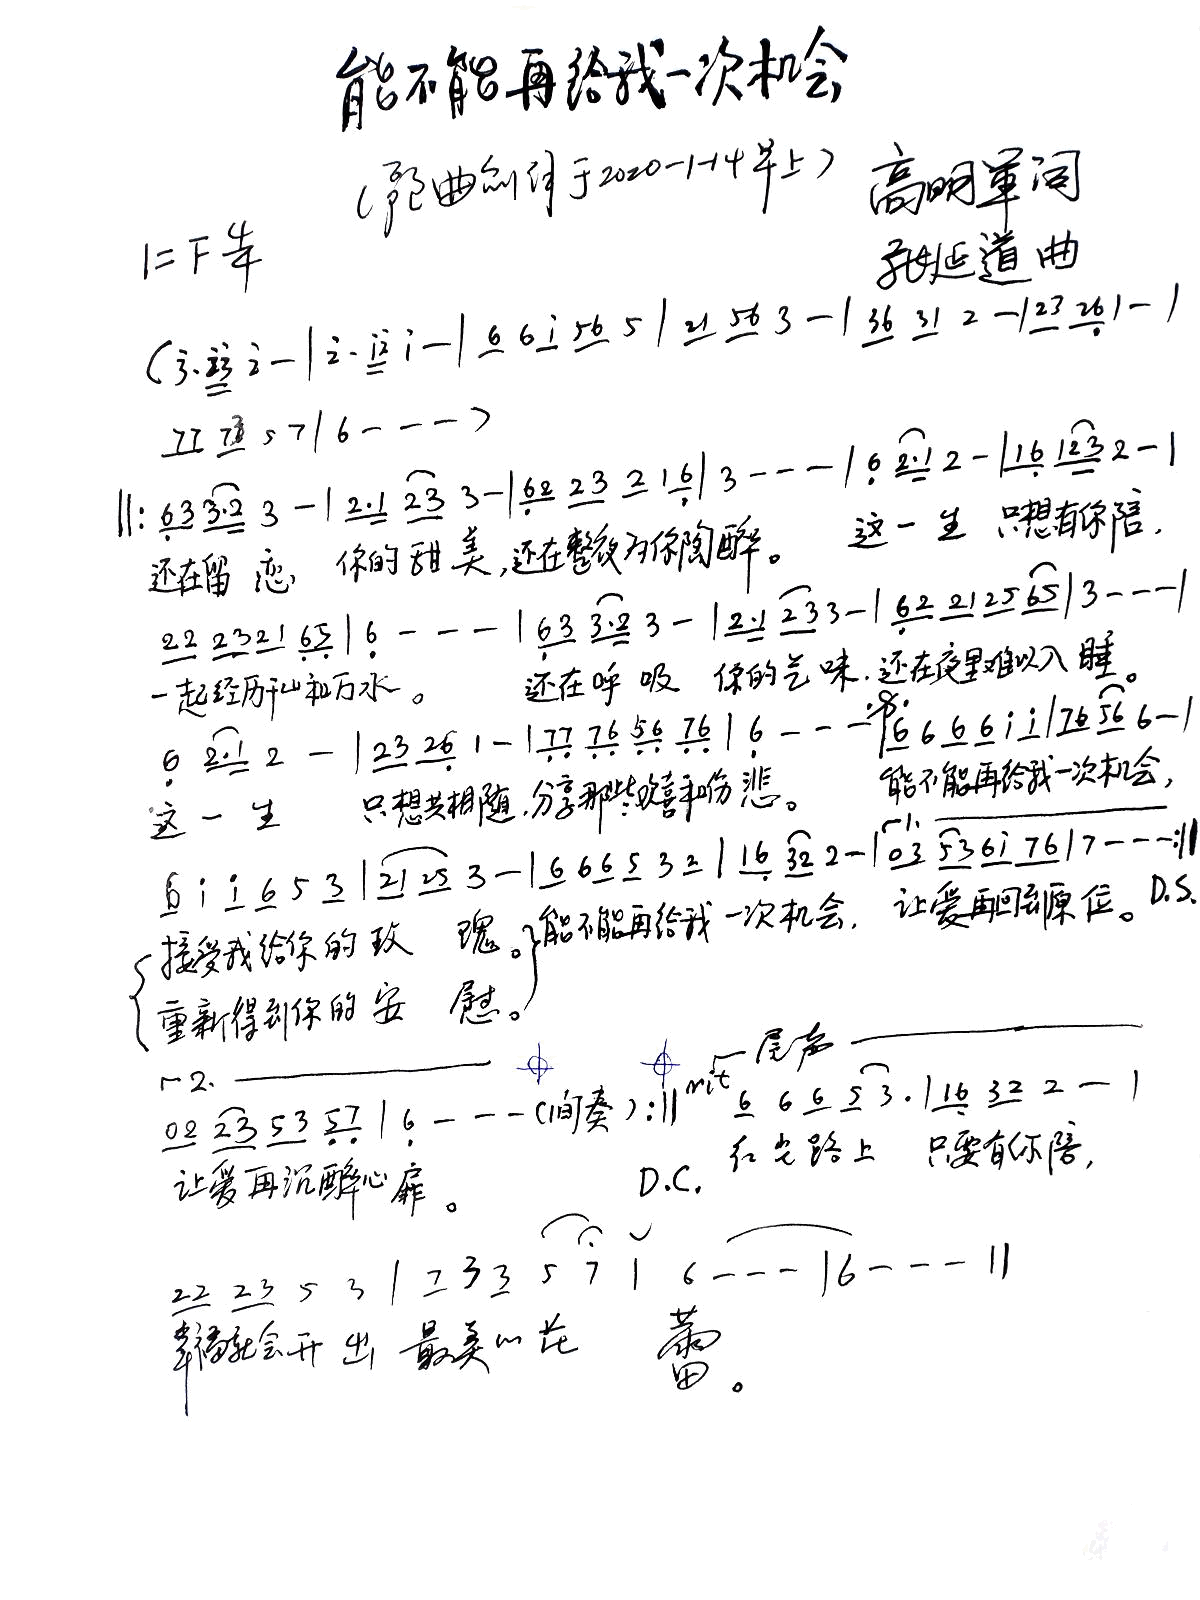 能不能再给我一次机会
(歌曲创作于2020-1-14早上) 高明军词
1=F 4/4 张延道曲
(3·23 2-|2·12 1-|6 6 1 56 5|21 56 3-|36 31 2-|23 26 1-|
77 73 5 7|6---)
||:63 3·2 3-|2·1 23 3-|62 23 2 16|3----|6 2·1 2-|16 123 2-|
还在留恋 你的甜美,还在整夜为你陶醉。 这一生 只想有你陪,
22 2321 65|6---|63 3·2 3-|2·1 23 3-|62 21 25 65|3---|
一起经历千山和万水。 还在呼吸 你的气味.还在夜里难以入睡。
6 2·1 2-|23 26 1-|77 76 56 76|6---|6 6 6 6 i i|76 56 6-|
这一生 只想共相随.分享那些欢喜和伤悲。 能不能再给我一次机会,
6 i i 6 5 3|21 25 3-|6 6 6 5 3 2|16 32 2-|1. 03 53 6i 76|7---:||
接受我给你的玫瑰。能不能再给我一次机会. 让爱再回到原位。D.S.
重新得到你的安慰。
2. 尾声
02 23 53 57|6---(间奏):|| rit 6 6 6 5 3·|16 32 2-|
让爱再沉醉心扉。 D.C. 红尘路上 只要有你陪,
22 23 5 3|7 3 3 5 7|6---|6---||
幸福就会开出最美的花蕾。